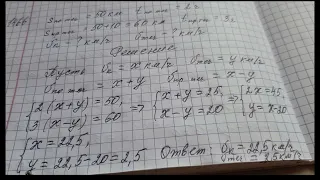 S по теч = 50 км t по теч = 2 ч
S пр теч = 50+10 = 60 км t пр теч = 3 ч
υк = ? км/ч υтеч = ? км/ч
Решение
Пусть υк = x км/ч υтеч = y км/ч
υ по теч = x + y υ пр теч = x - y
{2(x+y) = 50, => {x+y = 25, => {2x = 45,
{3(x-y) = 60 {x-y = 20 {y = x-20
{x = 22,5,
{y = 22,5-20 = 2,5 Ответ: υк = 22,5 км/ч
υтеч = 2,5 км/ч